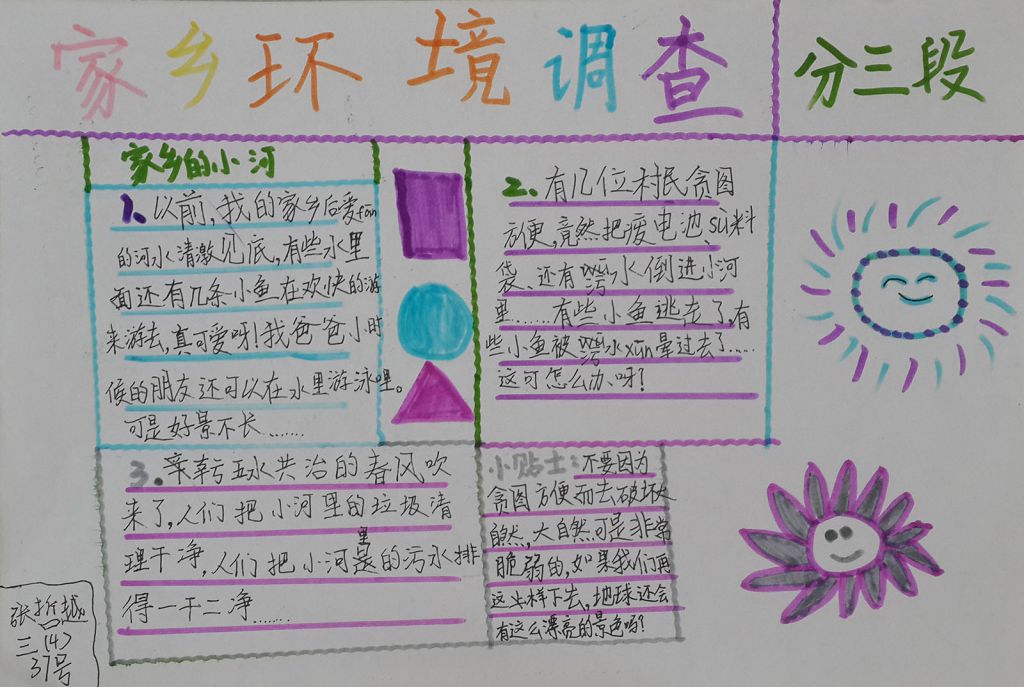 家乡环境调查
分三段
家乡的小河
1、以前,我的家乡后爱fān
的河水清澈见底,有些水里
面还有几条小鱼在欢快的游
来游去,真可爱呀!我爸爸小时
候的朋友还可以在水里游泳哩。
可是好景不长……
2、有几位村民贪图
方便,竟然把废电池、sù料
袋、还有污水倒进小河
里……有些小鱼逃走了,有
些小鱼被污水xūn晕过去了……
这可怎么办呀?
3.幸亏五水共治的春风吹
来了,人们把小河里的垃圾清
理干净,人们把小河里的污水排
得一干二净……
小贴士:不要因为
贪图方便而去破坏大
自然,大自然可是非常
脆弱的,如果我们再
这样下去,地球还会
有这么漂亮的景色吗?
张哲越
三(4)
37号